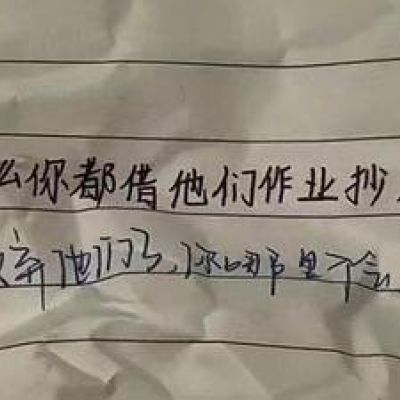 么你都借他们作业抄
弃他们了，你哪里不会